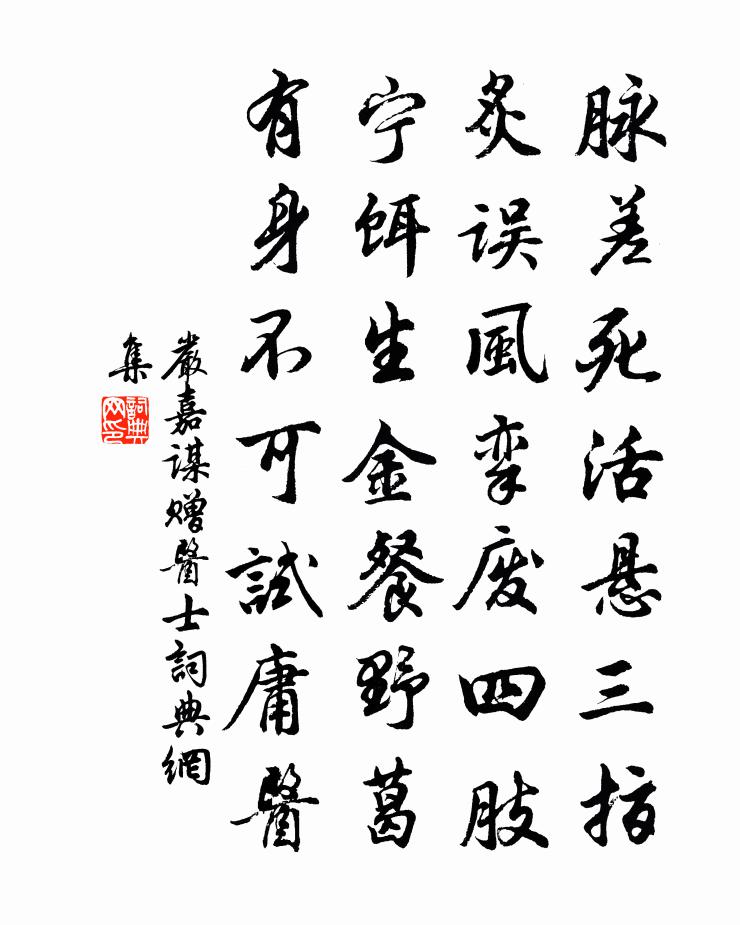 脉差死活悬三指
炙误風挛废四肢
宁饵生金餐野葛
有身不可試庸醫
嚴嘉謀赠醫士詞典網
集
詞典
网印